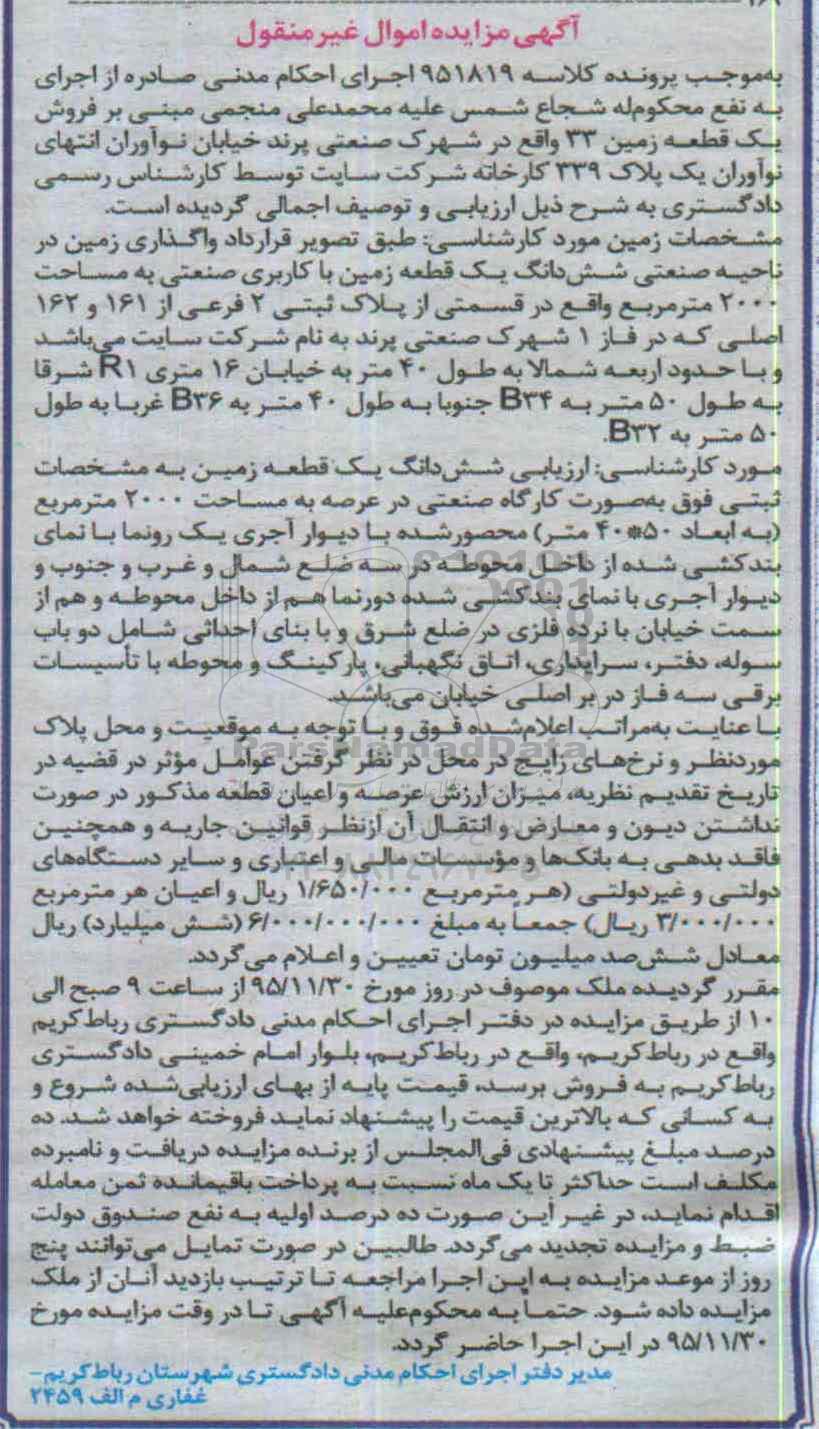 آگهی مزایده اموال غیرمنقول
به‌موجب پرونده کلاسه ۹۵۱۸۱۹ اجرای احکام مدنی صادره از اجرای
به نفع محکوم‌له شجاع شمس علیه محمدعلی منجمی مبنی بر فروش
یک قطعه زمین ۳۳ واقع در شهرک صنعتی پرند خیابان نوآوران انتهای
نوآوران یک پلاک ۳۳۹ کارخانه شرکت سایت توسط کارشناس رسمی
دادگستری به شرح ذیل ارزیابی و توصیف اجمالی گردیده است.
مشخصات زمین مورد کارشناسی: طبق تصویر قرارداد واگذاری زمین در
ناحیه صنعتی شش‌دانگ یک قطعه زمین با کاربری صنعتی به مساحت
۲۰۰۰ مترمربع واقع در قسمتی از پلاک ثبتی ۲ فرعی از ۱۶۱ و ۱۶۲
اصلی که در فاز ۱ شهرک صنعتی پرند به نام شرکت سایت می‌باشد
و با حدود اربعه شمالا به طول ۴۰ متر به خیابان ۱۶ متری R۱ شرقا
به طول ۵۰ متر به B۳۴ جنوبا به طول ۴۰ متر به B۳۶ غربا به طول
۵۰ متر به B۳۲.
مورد کارشناسی: ارزیابی شش‌دانگ یک قطعه زمین به مشخصات
ثبتی فوق به‌صورت کارگاه صنعتی در عرصه به مساحت ۲۰۰۰ مترمربع
(به ابعاد ۵۰*۴۰ متر) محصورشده با دیوار آجری یک رونما با نمای
بندکشی شده از داخل محوطه در سه ضلع شمال و غرب و جنوب و
دیوار آجری با نمای بندکشی شده دورنما هم از داخل محوطه و هم از
سمت خیابان با نرده فلزی در ضلع شرق و با بنای احداثی شامل دو باب
سوله، دفتر، سرایداری، اتاق نگهبانی، پارکینگ و محوطه با تأسیسات
برقی سه فاز در بر اصلی خیابان می‌باشد.
با عنایت به‌مراتب اعلام‌شده فوق و با توجه به موقعیت و محل پلاک
ParsNamadData
موردنظر و نرخ‌های رایج در محل در نظر گرفتن عوامل مؤثر در قضیه در
تاریخ تقدیم نظریه، میزان ارزش عرصه و اعیان قطعه مذکور در صورت
نداشتن دیون و معارض و انتقال آن ازنظر قوانین جاریه و همچنین
فاقد بدهی به بانک‌ها و مؤسسات مالی و اعتباری و سایر دستگاه‌های
دولتی و غیردولتی (هر مترمربع ۱/۶۵۰/۰۰۰ ریال و اعیان هر مترمربع
۳/۰۰۰/۰۰۰ ریال) جمعاً به مبلغ ۶/۰۰۰/۰۰۰/۰۰۰ (شش میلیارد) ریال
معادل شش‌صد میلیون تومان تعیین و اعلام می‌گردد.
مقرر گردیده ملک موصوف در روز مورخ ۹۵/۱۱/۳۰ از ساعت ۹ صبح الی
۱۰ از طریق مزایده در دفتر اجرای احکام مدنی دادگستری رباط‌کریم
واقع در رباط‌کریم، واقع در رباط‌کریم، بلوار امام خمینی دادگستری
رباط‌کریم به فروش برسد، قیمت پایه از بهای ارزیابی‌شده شروع و
به کسانی که بالاترین قیمت را پیشنهاد نماید فروخته خواهد شد. ده
درصد مبلغ پیشنهادی فی‌المجلس از برنده مزایده دریافت و نامبرده
مکلف است حداکثر تا یک ماه نسبت به پرداخت باقیمانده ثمن معامله
اقدام نماید، در غیر این صورت ده درصد اولیه به نفع صندوق دولت
ضبط و مزایده تجدید می‌گردد. طالبین در صورت تمایل می‌توانند پنج
روز از موعد مزایده به این اجرا مراجعه تا ترتیب بازدید آنان از ملک
مزایده داده شود. حتماً به محکوم‌علیه آگهی تا در وقت مزایده مورخ
۹۵/۱۱/۳۰ در این اجرا حاضر گردد.
مدیر دفتر اجرای احکام مدنی دادگستری شهرستان رباط‌کریم-
غفاری م الف ۲۴۵۹